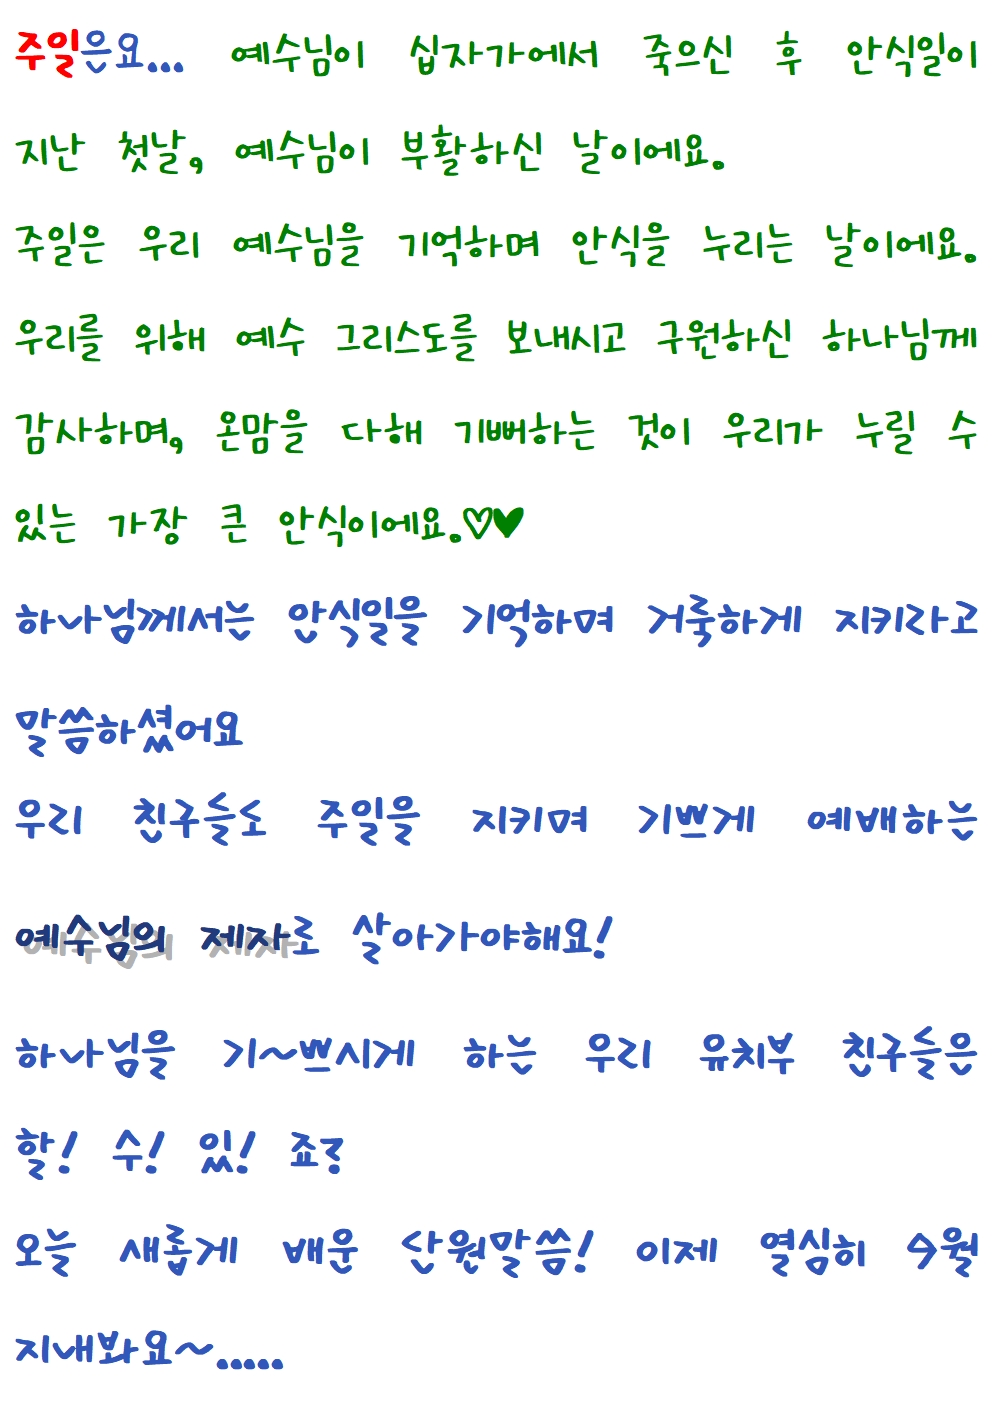 주일은요... 예수님이 십자가에서 죽으신 후 안식일이
지난 첫날, 예수님이 부활하신 날이에요.
주일은 우리 예수님을 기억하며 안식을 누리는 날이에요.
우리를 위해 예수 그리스도를 보내시고 구원하신 하나님께
감사하며, 온맘을 다해 기뻐하는 것이 우리가 누릴 수
있는 가장 큰 안식이에요.♡♥
하나님께서는 안식일을 기억하며 거룩하게 지키라고
말씀하셨어요
우리 친구들도 주일을 지키며 기쁘게 예배하는
예수님의 제자로 살아가야해요!
하나님을 기~쁘시게 하는 우리 유치부 친구들은
할! 수! 있! 죠?
오늘 새롭게 배운 산원말씀! 이제 열심히 수월
지내봐요~.....